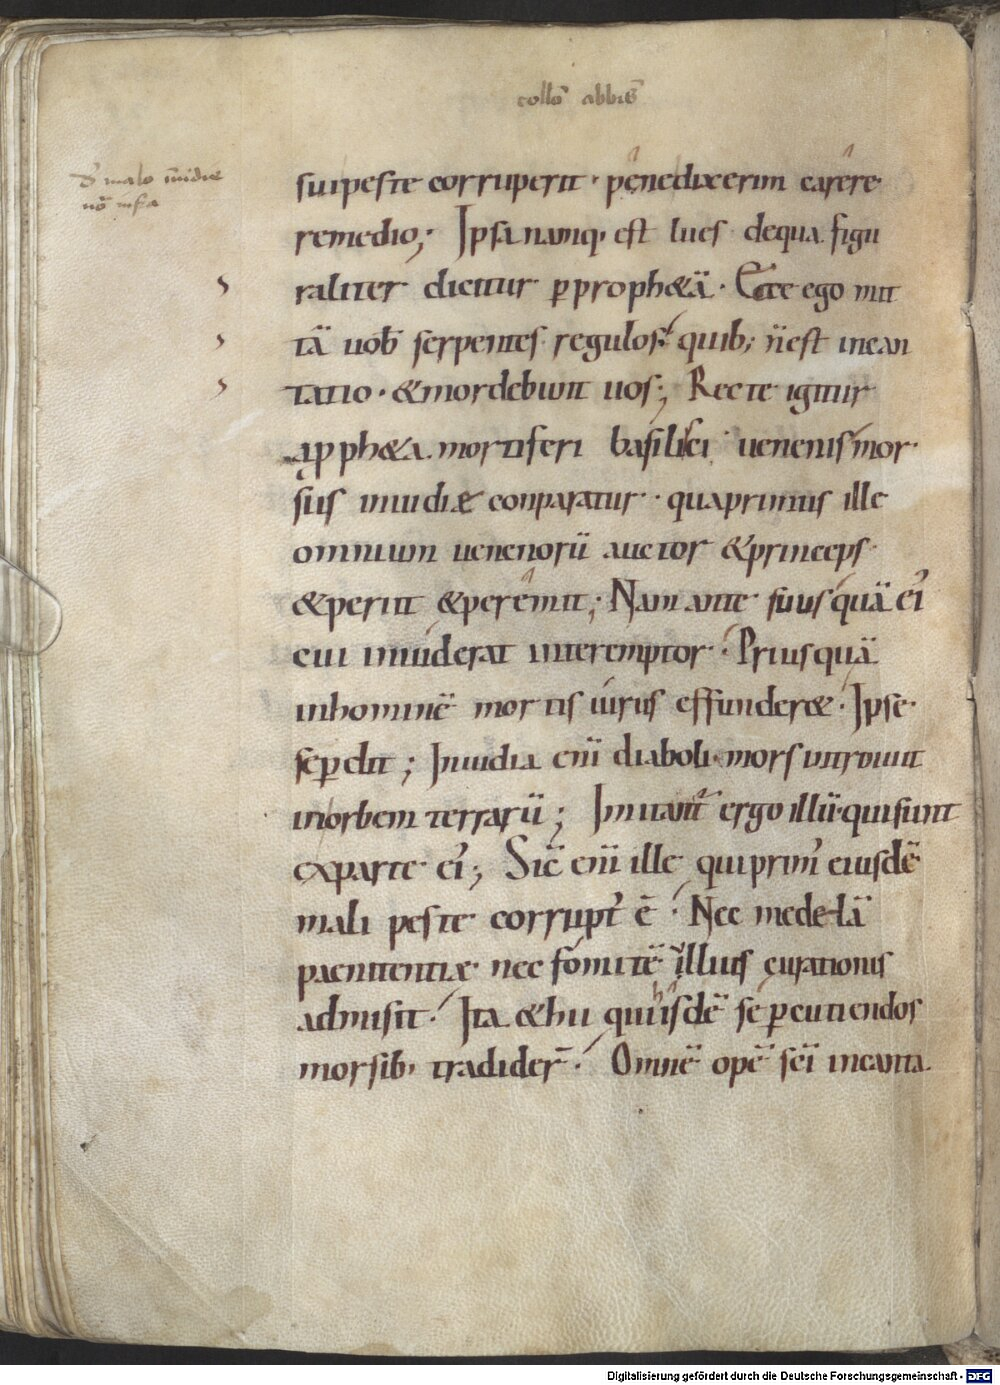 collo͞ abbis͞
De malo inuidie
suipeste corruperit · penedixerim carere
remedio; Ipsa namq; est lues dequa figu
raliter dicitur ꝑprophetā · Ecce ego mit
tā uob̄ serpentes regulos · quib; n̄est incan
tatio · &mordebunt uos; Recte igitur
aꝓph&a mortiferi basilisci uenenis mor
sus inuidiæ conparatur · quaprimus ille
omnium uenenorū auctor &princeps
&periit &peremit; Nam ante suus quā ei᾽
cui inuiderat interemptor · Priusquā
inhominē mortis uirus effunder& · Ipse
seꝑdit; Inuidia eni᷒ diaboli mors introiuit
inorbem terrarū; Imitant᷑ ergo illū quisunt
exparte ei᾽; Sic̄ eni᷒ ille quiprim᾽ eiusdē
mali peste corrupt᾽ ē · Nec medelā
paenitentiæ nec fomitē illius curationis
admisit · Ita &hii quihisdē se ꝑcutiendos
morsib; tradider̄ · Omnē opē sc̄i incanta
Digitalisierung gefördert durch die Deutsche Forschungsgemeinschaft - DFG